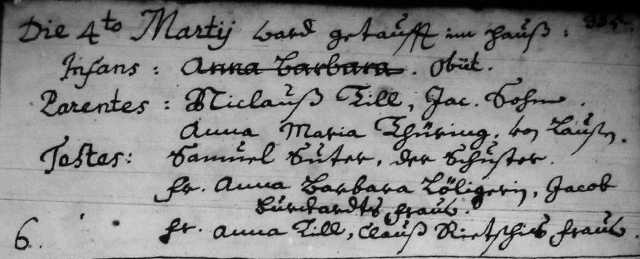 Die 4to Martij ward getaufft im Hauß:
Infans: Anna Barbara. Obiit.
Parentes: Niclauß Till, Jac. Sohn.
Anna Maria Thüring, von
Testes: Samuel Suter, der Schuster.
fr. Anna Barbara Löligerin, Jacob
Burckardts fraw.
6. fr. Anna Till, Clauß fraw.